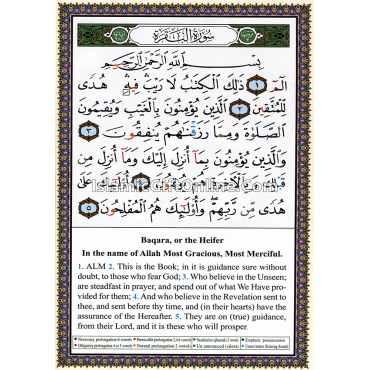 سورة البقرة
بسم الله الرحمن الرحيم
الم ١ ذلك الكتب لا ريب فيه هدى
للمتقين ٢ الذين يؤمنون بالغيب ويقيمون
الصلوة ومما رزقنهم ينفقون ٣
والذين يؤمنون بما أنزل إليك وما أنزل من
هدى من ربهم وأولئك هم المفلحون ٥
IslamicGiftOnline.com
Baqara, or the Heifer
In the name of Allah Most Gracious, Most Merciful.
1. ALM 2. This is the Book; in it is guidance sure without
doubt, to those who fear God; 3. Who believe in the Unseen;
are steadfast in prayer, and spend out of what We have Pro-
vided for them; 4. And who believe in the Revelation sent to
thee, and sent before thy time, and (in their hearts) have the
assurance of the Hereafter. 5. They are on (true) guidance,
from their Lord, and it is these who will prosper.
Necessary prolongation 6 vowels Permissible prolongation 2,4,6 vowels Nazalization (ghunnah) 2 vowels Emphatic pronunciation
Obligatory prolongation 4 or 5 vowels Normal prolongation 2 vowels Un announced (silent)